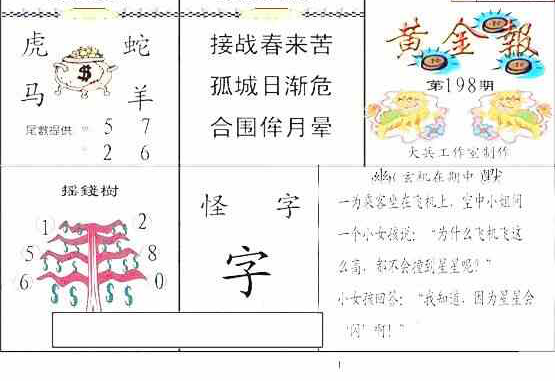 虎 蛇
$
马 羊
尾數提供 5 7
2 6
接战春来苦
孤城日渐危
合围侔月晕
黄金報
第198期
大兵工作室制作
摇錢樹
1 2
5 8
6 0
怪 字
字
玄机在期中
一为乘客坐在飞机上，空中小姐问
一个小女孩说：“为什么飞机飞这
么高，都不会撞到星星呢？”
小女孩回答：“我知道，因为星星会
‘闪’啊！”